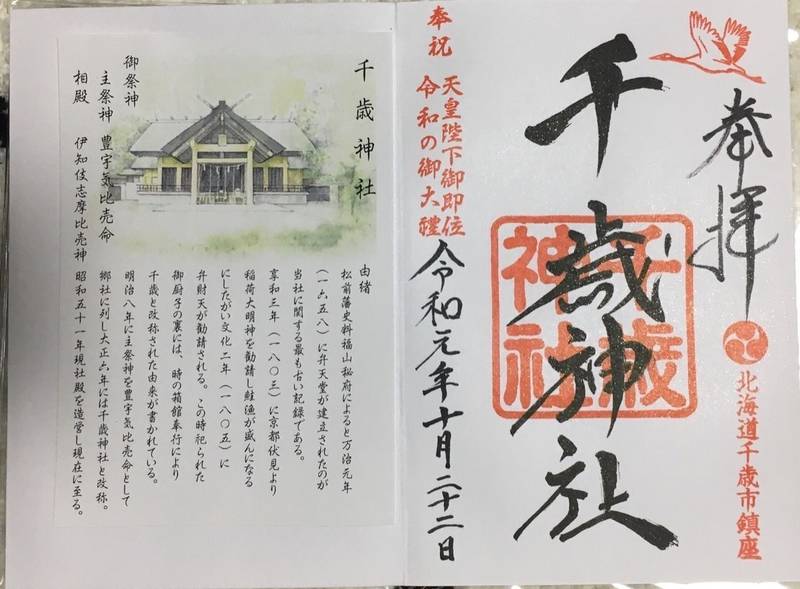 奉拝
北海道千歳市鎮座
千歳神社
千歳
神社
奉祝
天皇陛下御即位
令和の御大禮
令和元年十月二十二日
千歳神社
御祭神
主祭神 豊宇気比売命
相殿 伊知伎志摩比売神
由緒
松前藩史料福山秘府によると万治元年
（一六五八）に弁天堂が建立されたのが
当社に関する最も古い記録である。
享和三年（一八〇三）に京都伏見より
稲荷大明神を勧請し鮭漁が盛んになる
にしたがい文化二年（一八〇五）に
弁財天が勧請される。この時祀られた
御厨子の裏には、時の箱館奉行により
千歳と改称された由来が書かれている。
明治八年に主祭神を豊宇気比売命として
郷社に列し大正六年には千歳神社と改称。
昭和五十一年現社殿を造営し現在に至る。